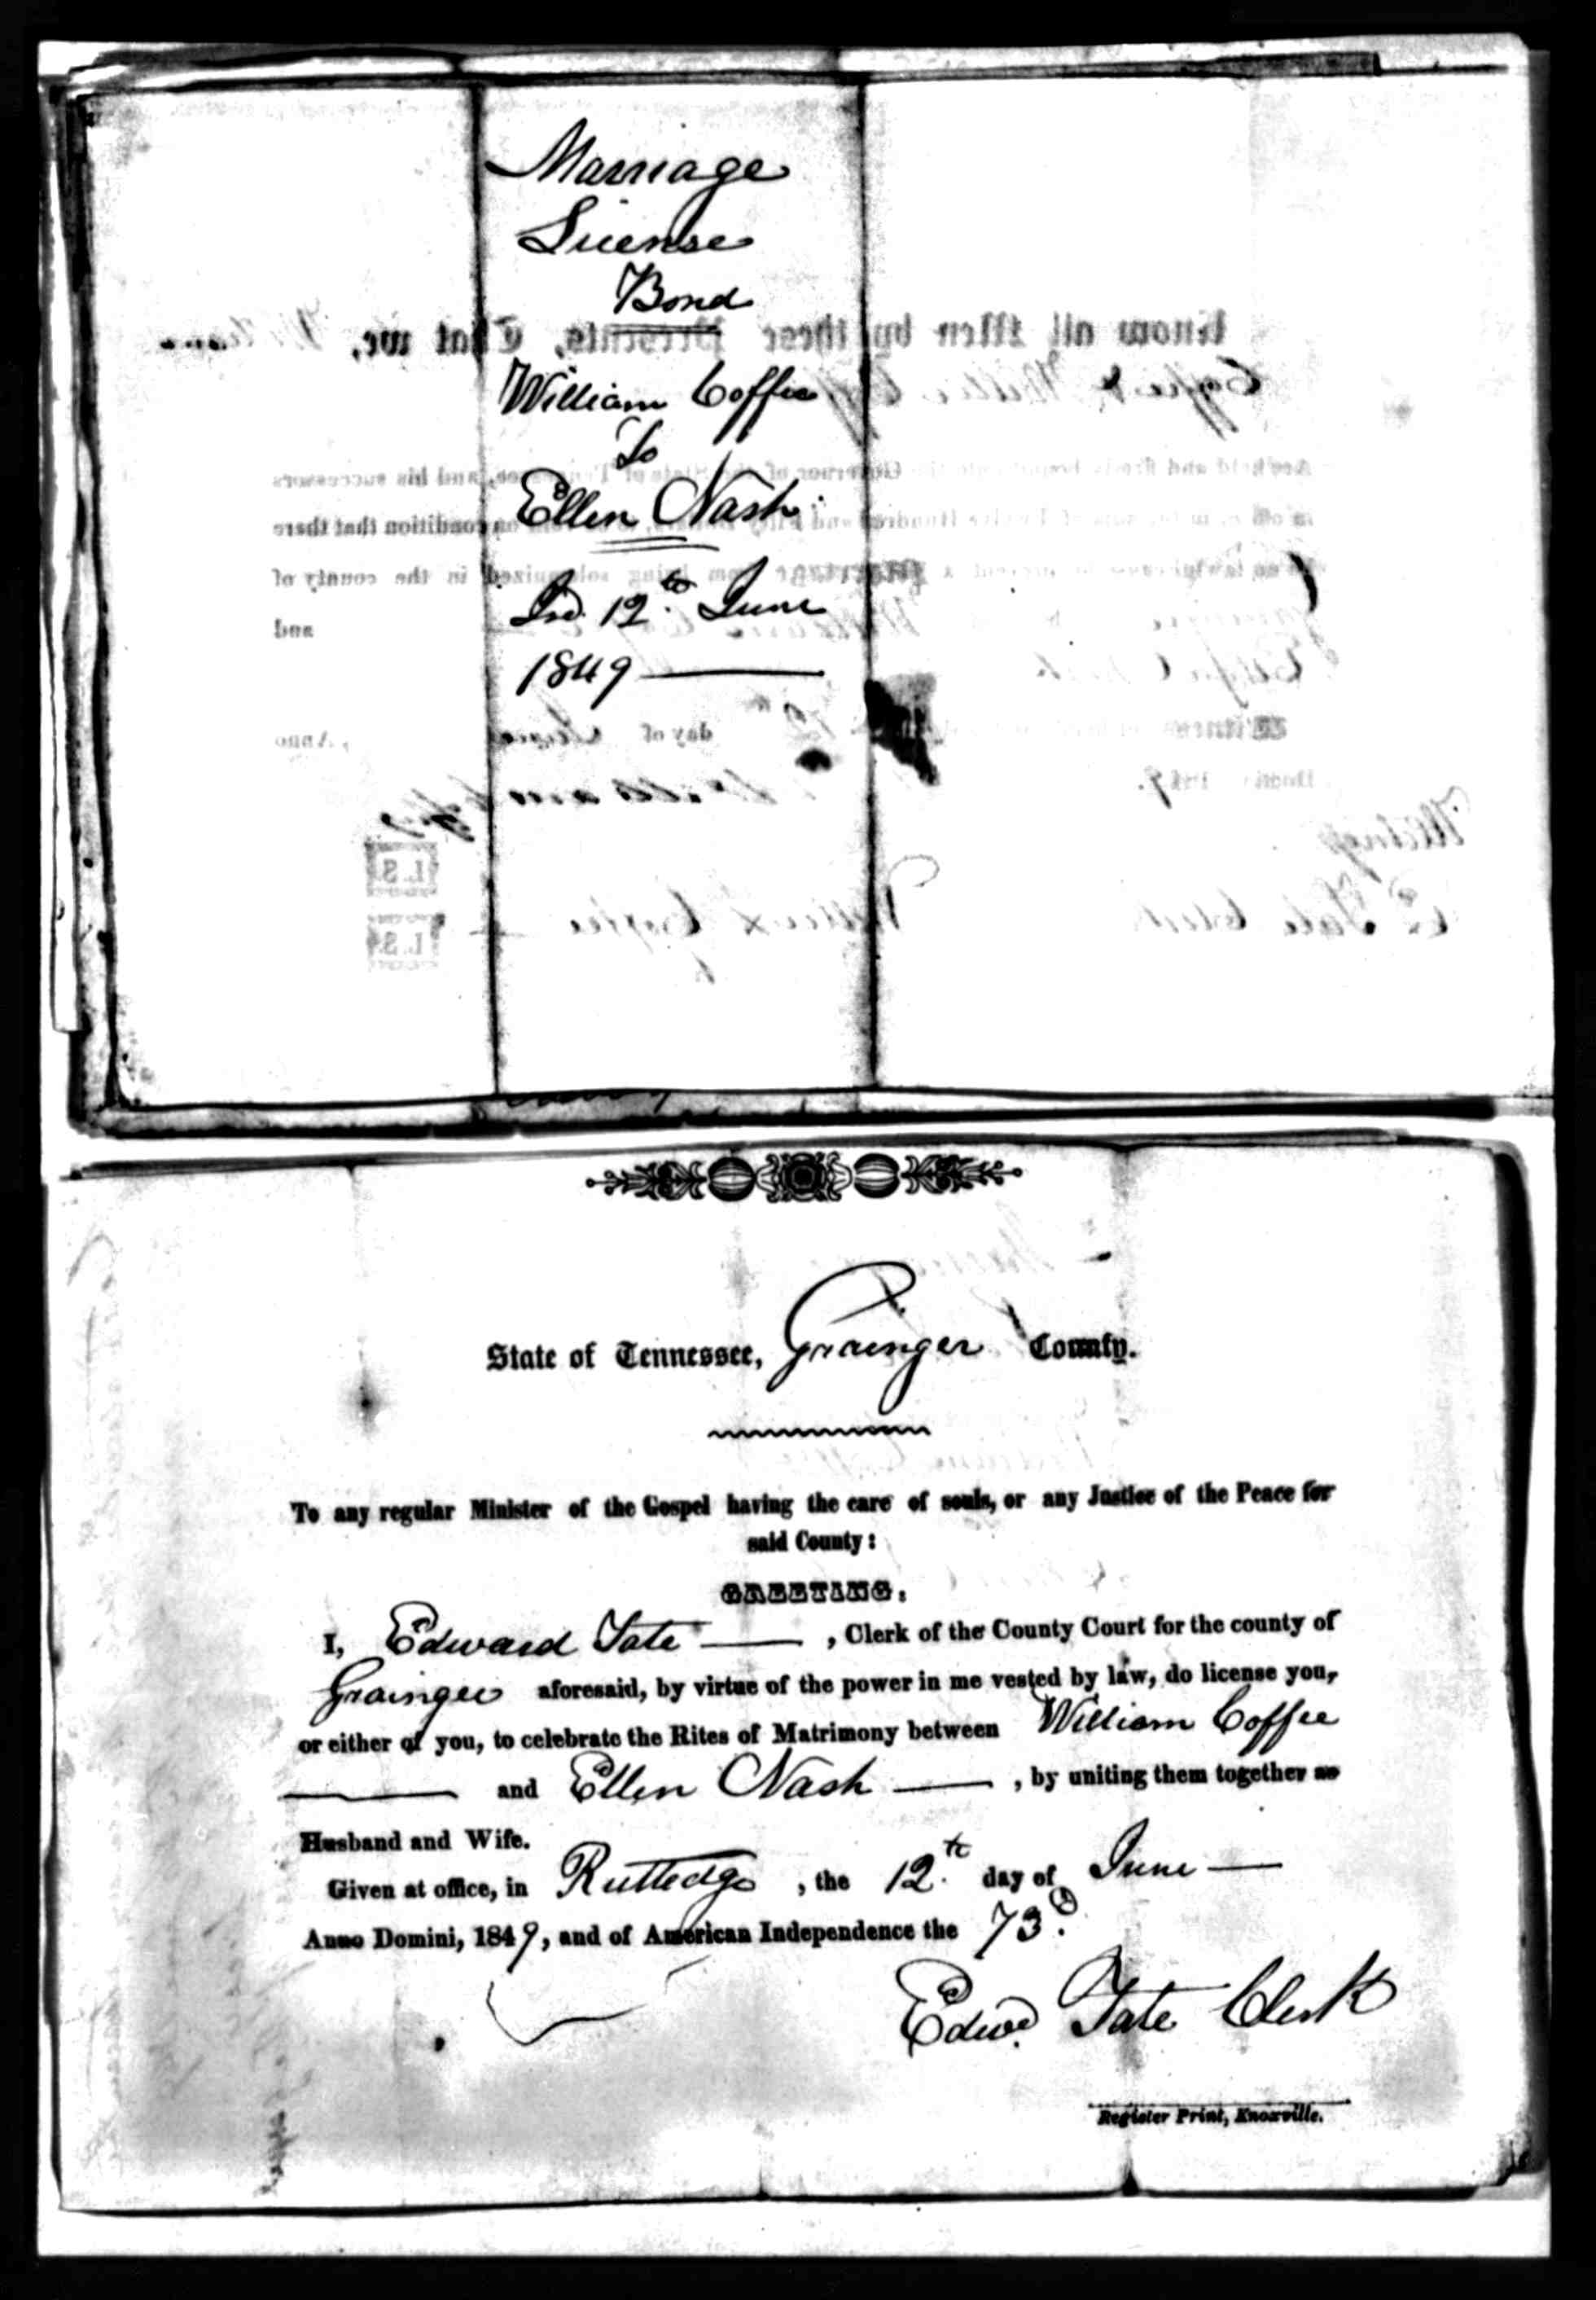 Marriage
License
Bond
William Coffee
To
Ellen Nash
Isd. 12th June
1849
Know all Men by these Presents, That we, William
Coffee &
are held and firmly bound unto the Governor of the State of Tennessee, and his successors
in office, in the sum of Twelve Hundred and Fifty Dollars, condition that there
is no lawful cause to prevent a Marriage from being solemnized in the county of
Grainger William Coffee and
Ellen Nash
Witness 12th day of June, Anno
Domini 1849.
William Coffee
Witness
L.S.
E. Tate Clerk Coffee
L.S.
State of Tennessee, Grainger County.
To any regular Minister of the Gospel having the care of souls, or any Justice of the Peace for
said County:
GREETING.
I, Edward Tate , Clerk of the County Court for the county of
Grainger aforesaid, by virtue of the power in me vested by law, do license you,
or either of you, to celebrate the Rites of Matrimony between William Coffee
and Ellen Nash , by uniting them together as
Husband and Wife.
Given at office, in Rutledge, the 12th day of June
Anno Domini, 1849, and of American Independence the 73d.
Edwd. Tate Clerk
Register Print, Knoxville.